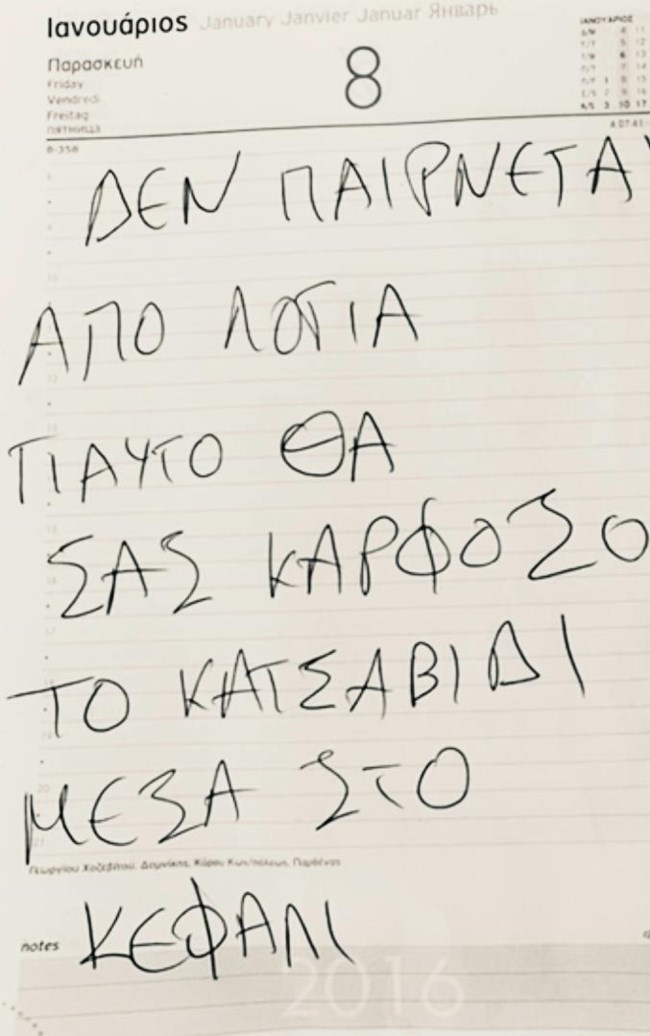 Ιανουάριος January Janvier Januar Январь
Παρασκευή
Friday
Vendredi
Freitag
ПЯТНИЦА
8
ΙΑΝΟΥΑΡΙΟΣ
8-358
ΔΕΝ ΠΑΙΡΝΕΤΑΙ
ΑΠΟ ΛΟΓΙΑ
ΓΙΑΥΤΟ ΘΑ
ΣΑΣ ΚΑΡΦΟΣΟ
ΤΟ ΚΑΤΣΑΒΙΔΙ
ΜΕΣΑ ΣΤΟ
Γεωργίου Χοζεβίτου, Δομνίκης, Κύρου Κων/πόλεως, Παρθένας
ΚΕΦΑΛΙ
notes
2016